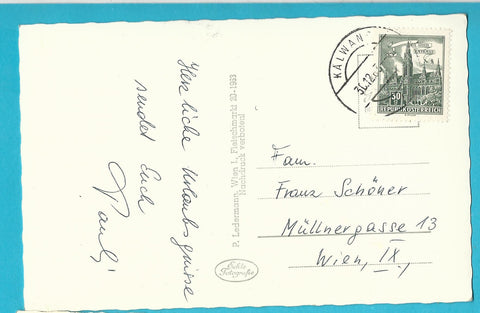 Herzliche Urlaubsgrüsse
sendet Euch
Paul!
P. Ledermann, Wien I., Fleischmarkt 20 - 1933
Nachdruck verboten!
Echte
Fotografie
KALWANG
30.12.
50
REPUBLIK ÖSTERREICH
Fam.
Franz Schöner
Müllnergasse 13
Wien, IX.,